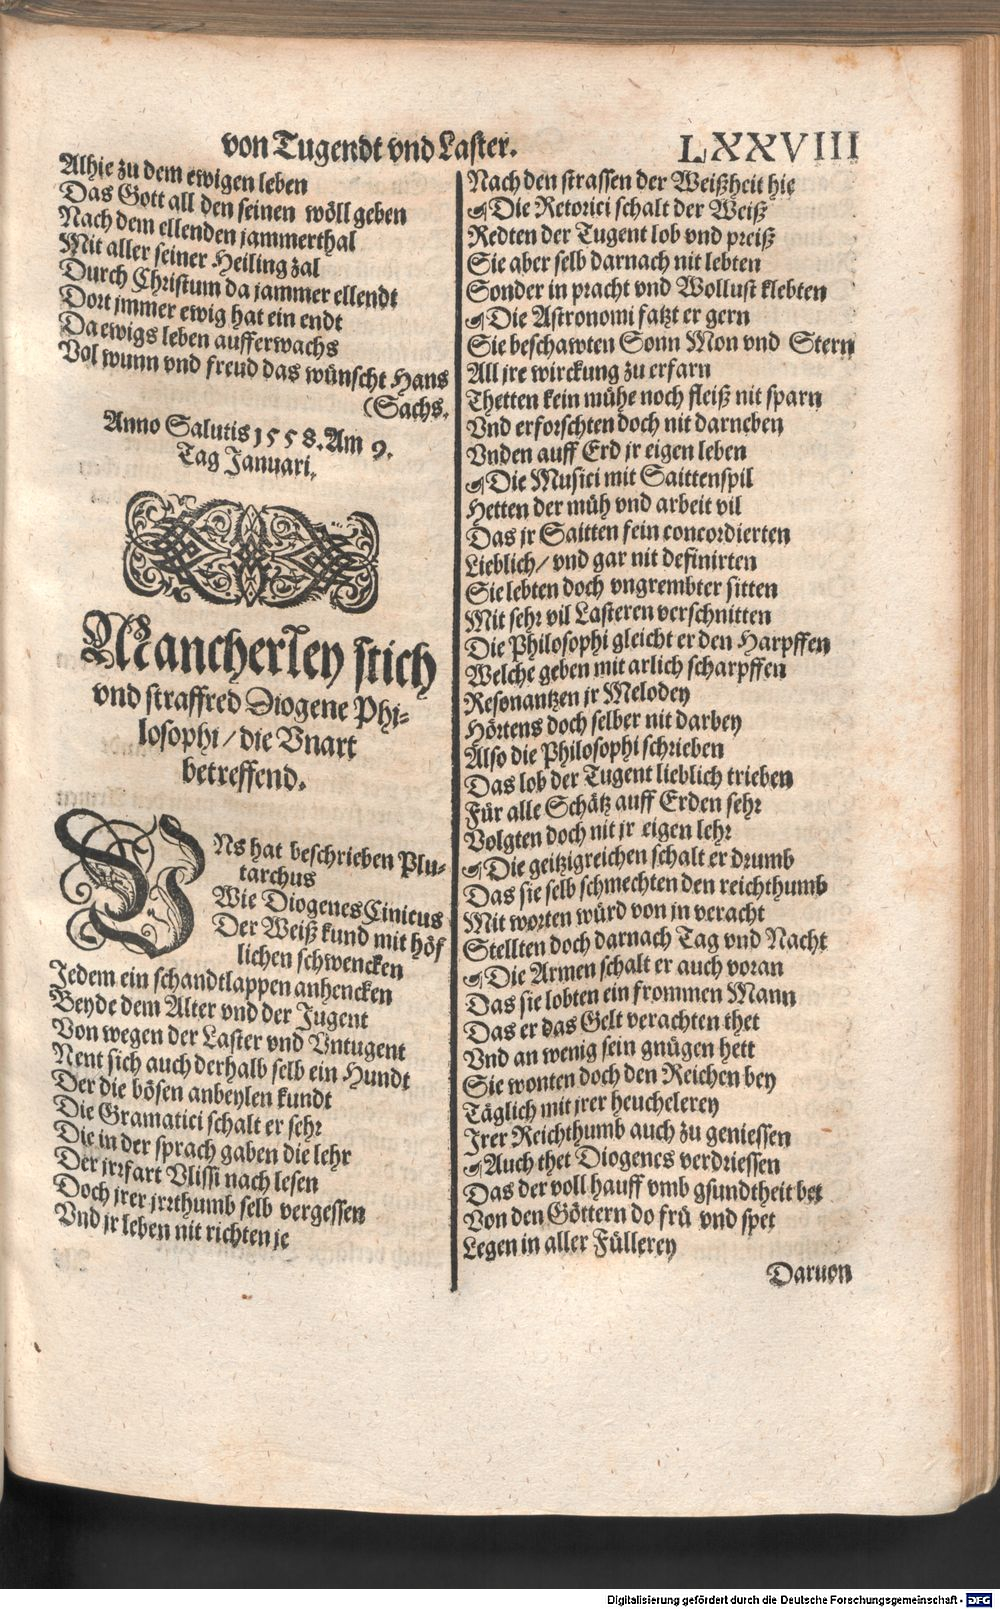 von Tugendt vnd Laster.
LXXVIII
Alhie zu dem ewigen leben
Das Gott all den seinen wöll geben
Nach dem ellenden jammerthal
Mit aller seiner Heiling zal
Durch Christum da jammer ellendt
Dort jmmer ewig hat ein endt
Da ewigs leben aufferwachs
Vol wunn vnd freud das wünscht Hans
(Sachs.
Anno Salutis 1558. Am 9.
Tag Januari.
Mancherley stich
vnd straffred Diogene Phi-
losophi / die Vnart
betreffend.
VNs hat beschrieben Plu-
tarchus
Wie Diogenes Cinicus
Der Weiß kund mit höf
lichen schwencken
Jedem ein schandtlappen anhencken
Beyde dem Alter vnd der Jugent
Von wegen der Laster vnd Vntugent
Nent sich auch derhalb selb ein Hundt
Der die bösen anbeylen kundt
Die Gramatici schalt er sehr
Die in der sprach gaben die lehr
Der jrrfart Vlissi nach lesen
Doch jrer jrrthumb selb vergessen
Vnd jr leben nit richten je
Nach den strassen der Weißheit hie
☙Die Retorici schalt der Weiß
Redten der Tugent lob vnd preiß
Sie aber selb darnach nit lebten
Sonder in pracht vnd Wollust klebten
☙Die Astronomi fatzt er gern
Sie beschawten Sonn Mon vnd Stern
All jre wirckung zu erfarn
Thetten kein mühe noch fleiß nit sparn
Vnd erforschten doch nit darneben
Vnden auff Erd jr eigen leben
☙Die Musici mit Saittenspil
Hetten der müh vnd arbeit vil
Das jr Saitten fein concordierten
Lieblich / vnd gar nit definirten
Sie lebten doch vngrembter sitten
Mit sehr vil Lasteren verschnitten
Die Philosophi gleicht er den Harpffen
Welche geben mit arlich scharpffen
Resonantzen jr Melodey
Hörtens doch selber nit darbey
Also die Philosophi schrieben
Das lob der Tugent lieblich trieben
Für alle Schätz auff Erden sehr
Volgten doch nit jr eigen lehr
☙Die geitzigreichen schalt er drumb
Das sie selb schmechten den reichthumb
Mit worten würd von jn veracht
Stellten doch darnach Tag vnd Nacht
☙Die Armen schalt er auch voran
Das sie lobten ein frommen Mann
Das er das Gelt verachten thet
Vnd an wenig sein gnügen hett
Sie wonten doch den Reichen bey
Täglich mit jrer heuchelerey
Jrer Reichthumb auch zu geniessen
☙Auch thet Diogenes verdriessen
Das der voll hauff vmb gsundtheit bet
Von den Göttern do frü vnd spet
Legen in aller Füllerey
Daruon
Digitalisierung gefördert durch die Deutsche Forschungsgemeinschaft - DFG